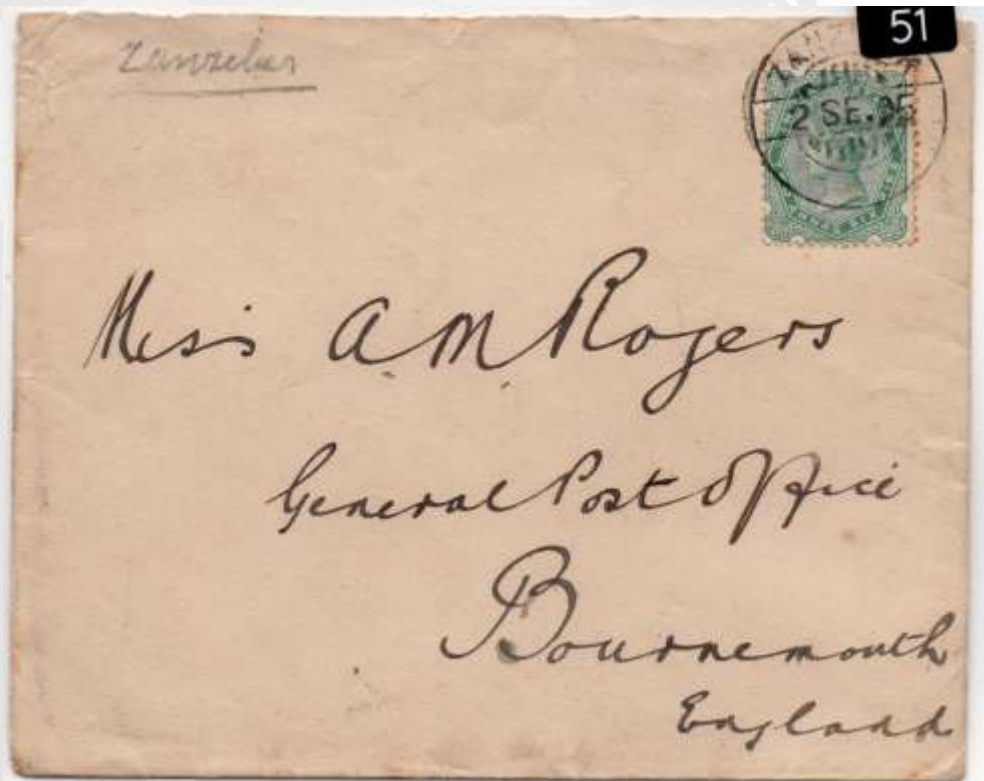 51
Zanzibar
ZANZIBAR
2 SE.95
Miss A. M. Rogers
General Post Office
Bournemouth
England